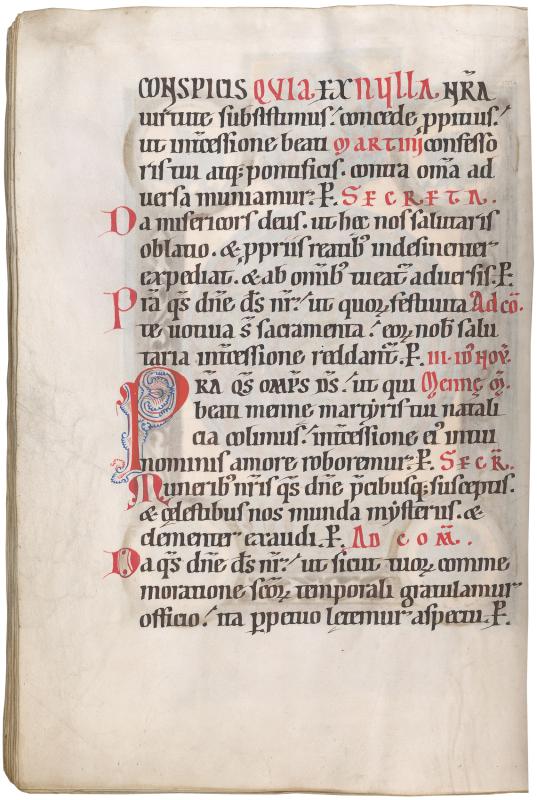 CONSPICIS QVIA EX NVLLA NR̄A
uirtute subsistimus. concede ppitius.
ut int̄cessione beati MARTINI confesso
ris tui atq; pontificis. contra om̄a ad
uersa muniamur. P. SECRETA.
Da misericors deus. ut hec nos salutaris
oblatio. & ppriis reatib; indesinenter
expediat. & ab om̄ib; tueat̄ aduersis. P.
P̄ra q̄s dn̄e d̄s nr̄. ut quoꝝ festiuita Ad cō.
te uotiua s̄ sacramenta. eoꝝ nob̄ salu
taria int̄cessione reddant̄. P. III. ID NOV̄.
PR̄A Q̄S OMP̄S D̄S. ut qui Menne m̄.
beati menne martyris tui natali
cia colimus. int̄cessione ei; in tui
nominis amore roboremur. P. SECR̄.
Munerib; nr̄is q̄s dn̄e p̄cibusq; susceptis.
& celestibus nos munda mysteriis. &
clementer exaudi. P. AD COM̄.
Da q̄s dn̄e d̄s nr̄. ut sicut tuoꝝ comme
moratione sc̄oꝝ temporali gratulamur
officio. ita ppetuo letemur aspectu. P.